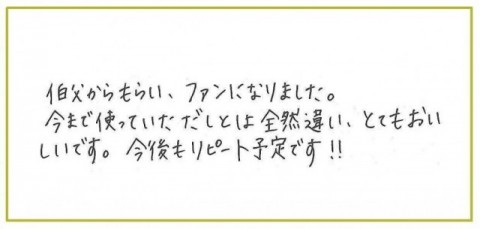 伯父からもらい、ファンになりました。
今まで使っていただしとは全然違い、とてもおい
しいです。今後もリピート予定です!!